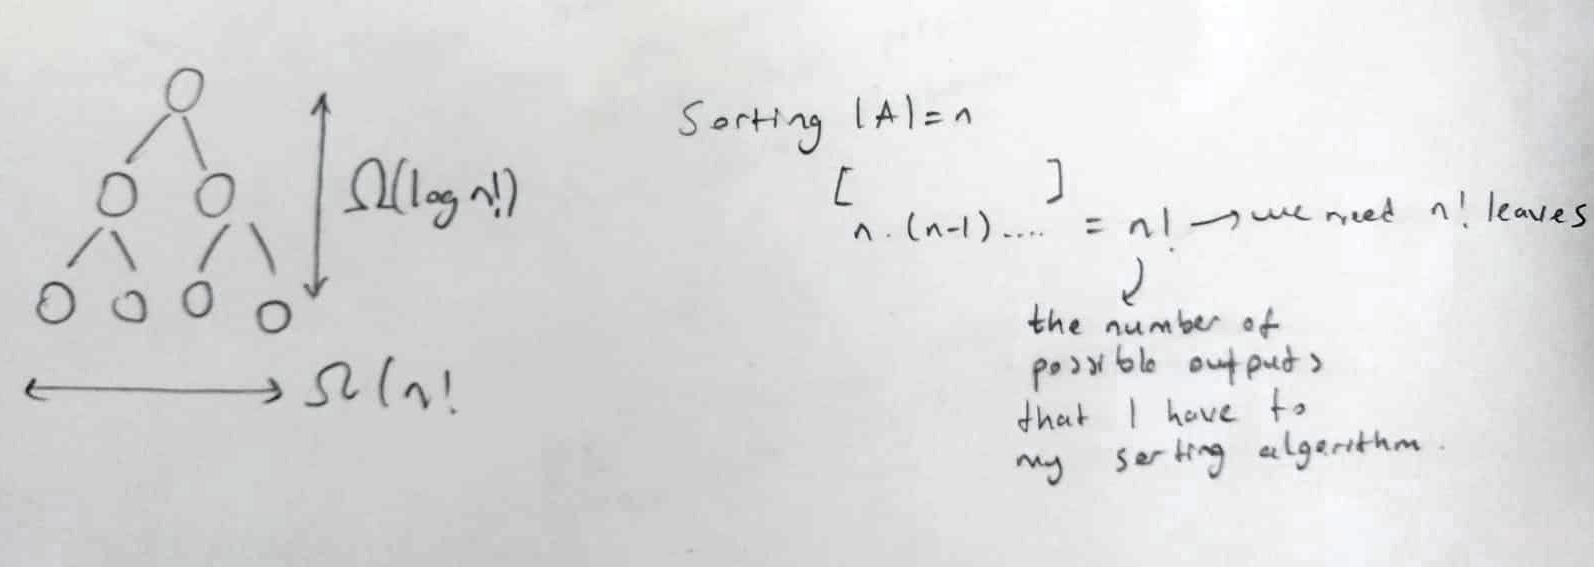 Sorting |A| = n
Ω(log n!)
[ ]
n . (n-1) .... = n! → we need n! leaves
the number of
possible outputs
that I have to
my sorting algorithm.
Ω(n!